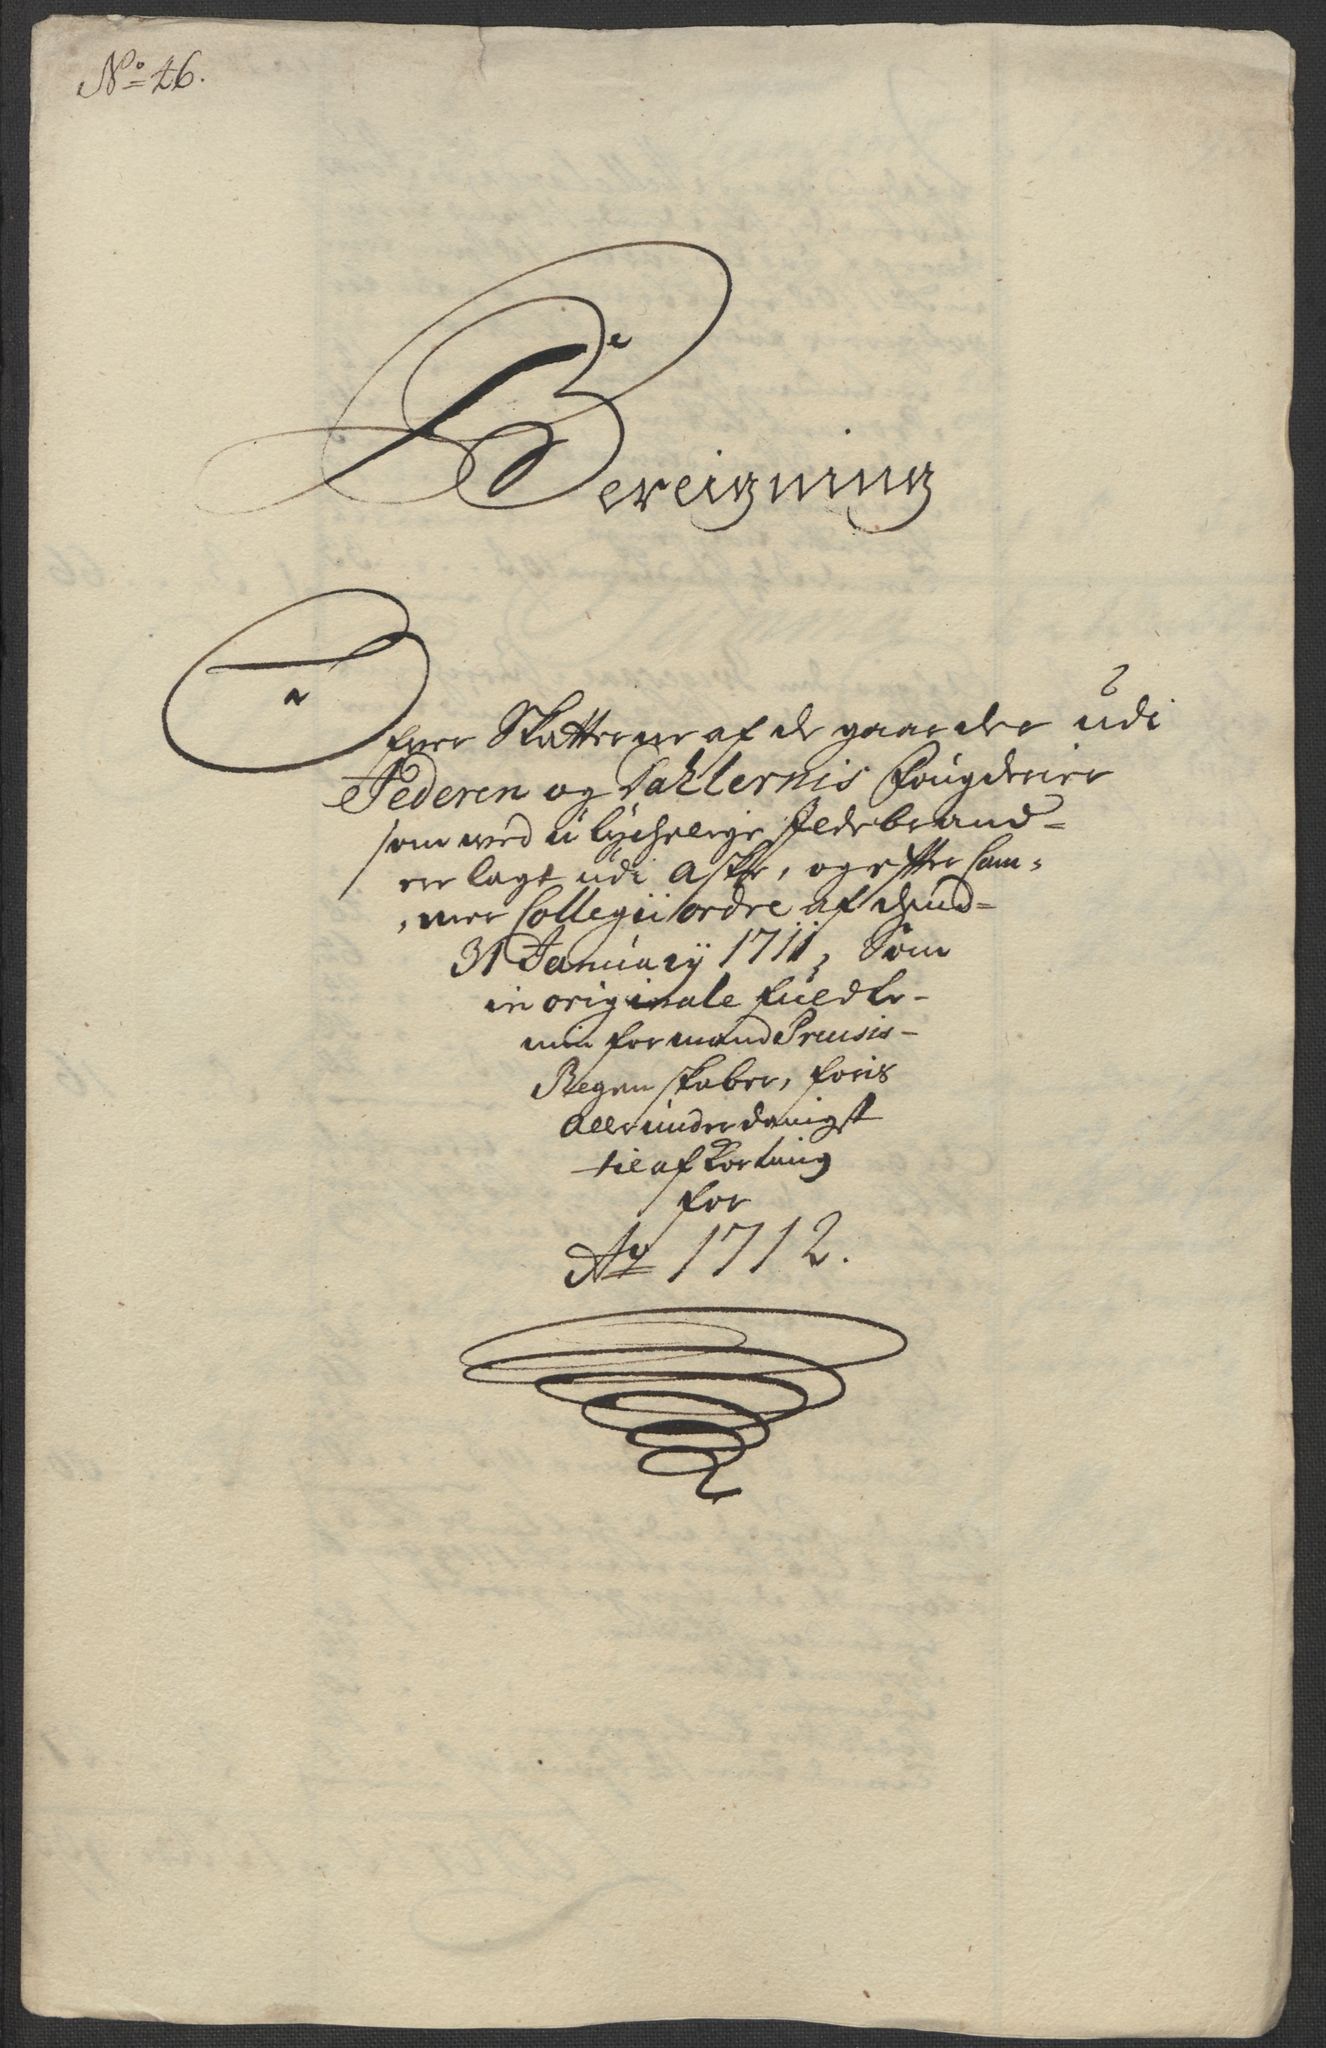 No 26.
Bereigning
Ofver Skatterne af de gaarder udi
Jederen og Dahlernis Fougderier
som med ulychelige Ildebrand-
er lagt udi Aske, og effter Cam-
mer Collegii ordre af
31 January 1711, Som
in originale fuldte-
min formand Preusis-
Regenskaber, foris
allerunderdanigst
til afkortning
for
Ao 1712.